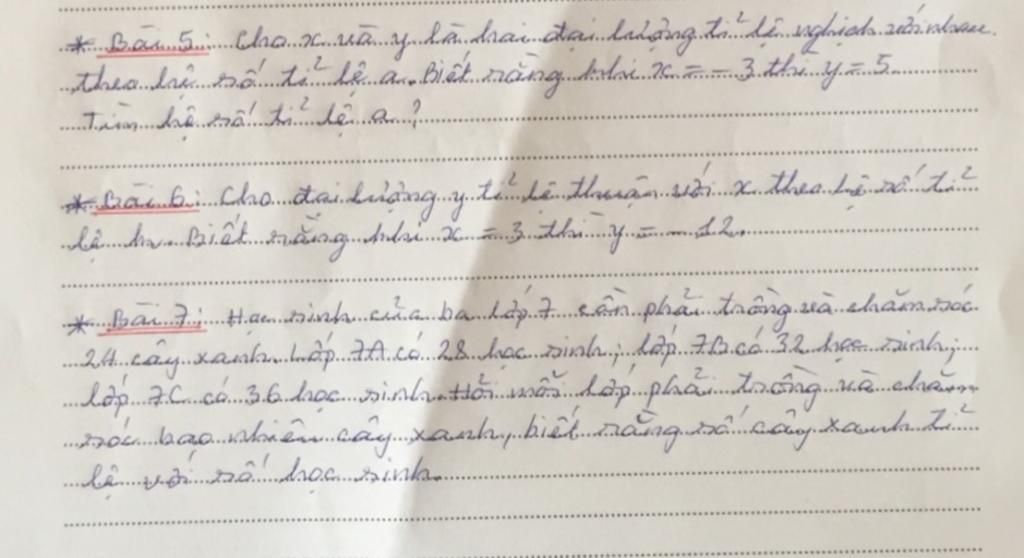 * Bài 5: Cho x và y là hai đại lượng tỉ lệ nghịch với nhau.
theo hệ số tỉ lệ a. Biết rằng khi x = -3 thì y = 5
Tìm hệ số tỉ lệ a?
* Bài 6: Cho đại lượng y tỉ lệ thuận với x theo hệ số tỉ
lệ k. Biết rằng khi x = 3 thì y = -12.
* Bài 7: Học sinh của ba lớp 7 cần phải trồng và chăm sóc
24 cây xanh. Lớp 7A có 28 học sinh; lớp 7B có 32 học sinh;
lớp 7C có 36 học sinh. Hỏi mỗi lớp phải trồng và chăm
sóc bao nhiêu cây xanh, biết rằng số cây xanh tỉ
lệ với số học sinh.